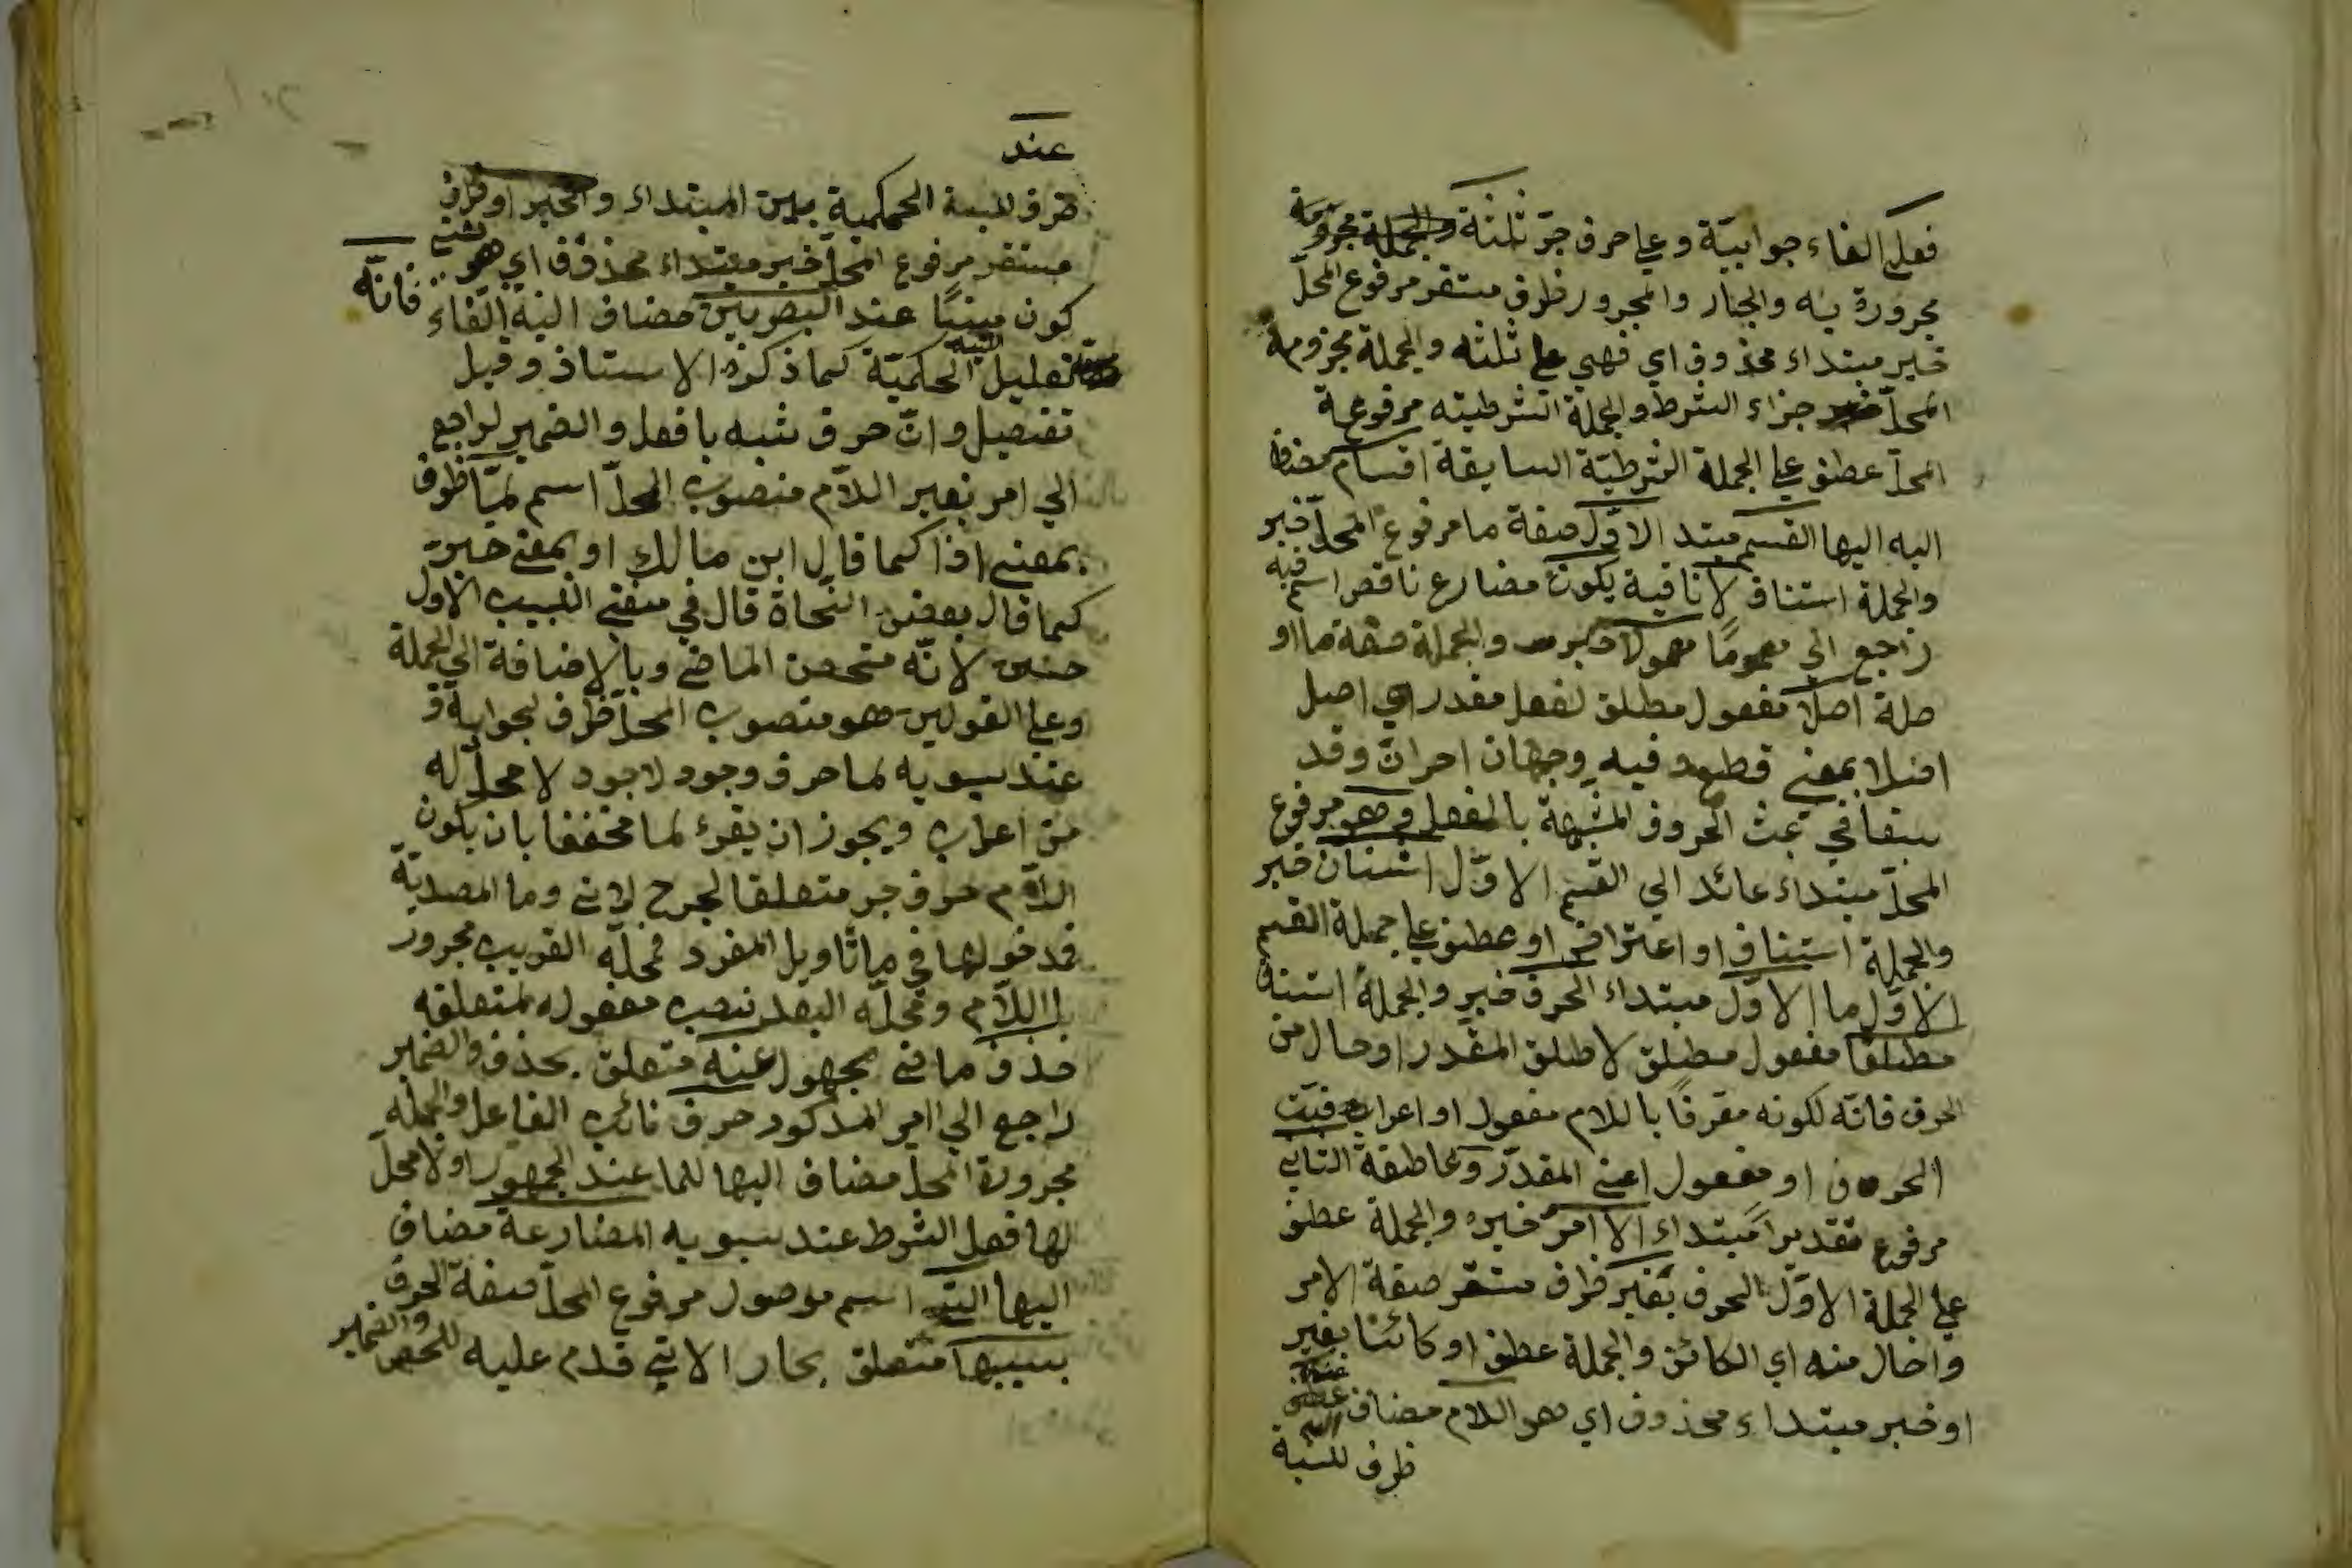 فعلي الفاء جوابيّة وعلى حرف جرّ ثلثة والجملة مجزومة
مجرورة به والجار والمجرور ظرف مستقر مرفوع المحلّ
خبر مبتداء محذوف اي فهي على ثلثه والجملة مجزومة
المحلّ جزاء الشرط والجملة الشرطيته مرفوعة
المحلّ عطف على الجملة الشرطيّة السابقة اقسام مضاف
اليه اليها القسم مبتد الاوّل صفة ما مرفوع المحلّ خبر
والجملة استناف لا نافية يكون مضارع ناقص اسم فيه
راجع الى معمولا خبره والجملة صفة ما او
صلة اصلا مفعول مطلق لفعل مقدر اي اصل
اصلا بمعنى قطع وفيه وجهان اخران وقد
سبقا في بحث الحروف المشبهة بالفعل وهو مرفوع
المحلّ مبتداء عائد الي القسم الاوّل اثنان خبر
والجملة استناف او اعتراض او عطف على جملة القسم
الاوّل ما الاوّل مبتداء الحرف خبر والجملة استناف
مطلقا مفعول مطلق لاطلق المقدر او حال من
الحرف فانّه لكونه معرفا باللام مفعول او اعراب
الحروف او مفعول اعني المقدّر و عاطفة الثاني
مرفوع تقديرا مبتداء الامر خبره والجملة عطف
على الجملة الاوّل الحرف بغير ظرف مستقر صفة الامر
واحال منه اي الكائن والجملة عطف او كائنا بغير
او خبر مبتداء محذوف اي هو اللام مضاف اليه عند
ظرف للنسبة
عند
ظرف للنسبة الحكمية بين المبتداء والخبر او ظرف
مستقر مرفوع المحلّ خبر مبتداء محذوف اي هو
كون مبنيّا عند البصريين مضاف اليه الفاء فانّه
تعليل النسبة الحكميّة كما ذكره الاستاذ وقيل
تفصيل وانّ حرف شبه بافعل والضمير لراجع
الي امر بغير اللاّم منصوب المحلّ اسم لمّا ظرف
بمعنى اذا كما قال ابن مالك او بمعنى حين
كما قال بعض النّحاة قال في مغني اللبيب الاول
حسن لانّه مختص الماضي وبالاضافة الي الجملة
وعلى القولين هو منصوب المحلّ ظرف لجوابه و
عند سيبويه لما حرف وجود لاجود لا محلّ له
من اعراب ويجوز ان يقرء لما مخففا بان يكون
اللام حرف جر متعلقا لجرح لاني وما المصدريّة
فمدخولها في ما تأويل المفرد فمحلّه القريب مجرور
باللاّم ومحلّه البعد نصب مفعول له لمتعلقه
حذف ماضي مجهول عنه متعلق بحذف والضمير
راجع الي امر المذكور حرف نائب الفاعل والجملة
مجرورة المحلّ مضاف اليها للما عند الجمهور او لا محلّ
لها فعل الشرط عند سيبويه المضارعة مضاف
اليها التي اسم موصول مرفوع المحلّ صفة الحرف
بسببها متعلق بجار الاتي قدم عليه للحصر والضمير